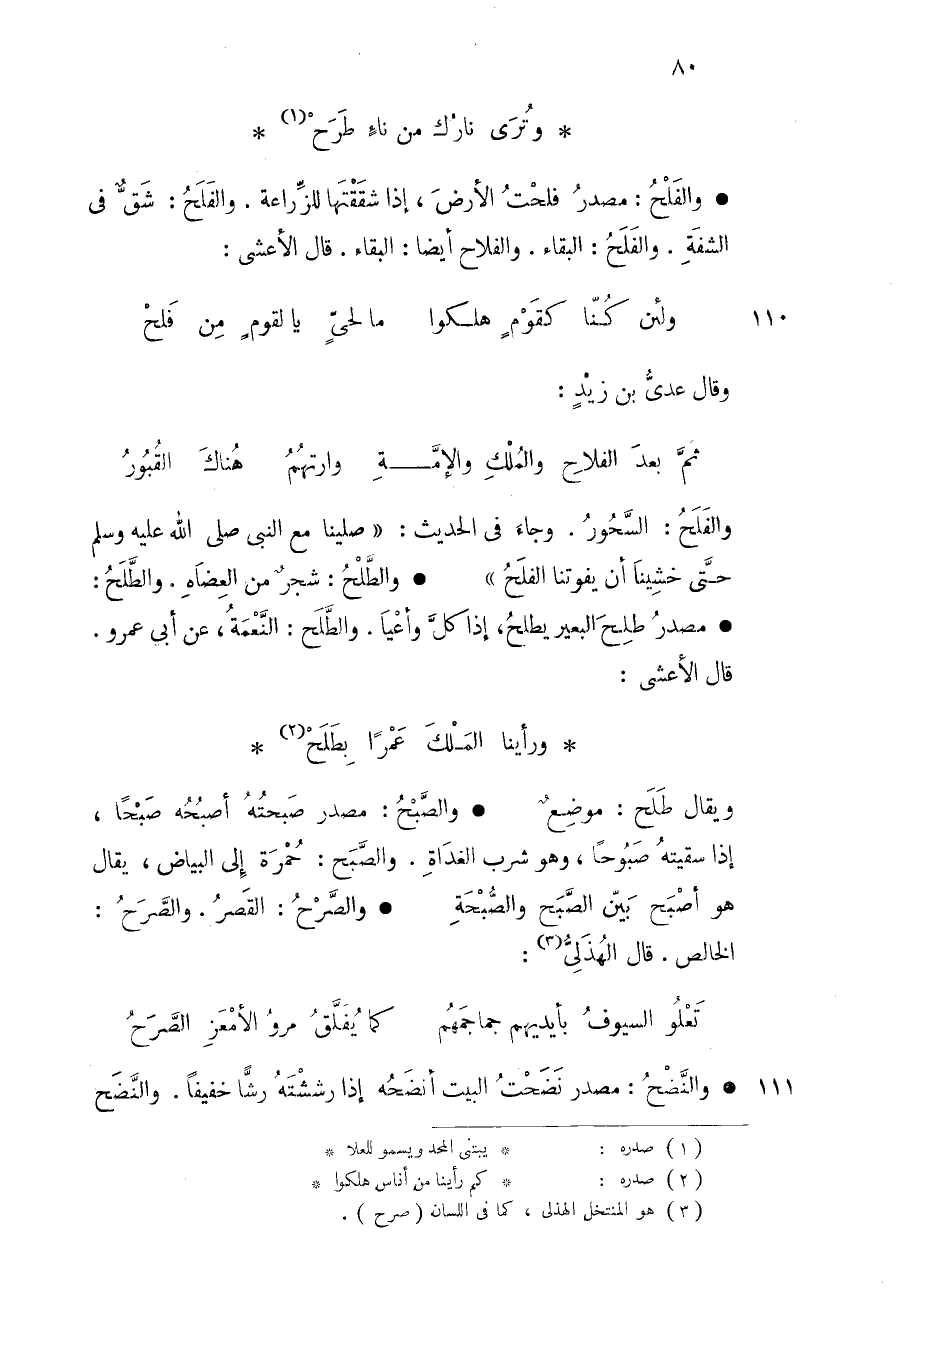 ٨٠
* وتُرَى نارُك من ناءٍ طَرَحْ(١) *
● والفَلْحُ : مصدرُ فلحْتُ الأرضَ ، إذا شقَقْتَها للزِّراعة . والفَلَحُ : شَقٌّ فى
الشفَةِ . والفَلَحُ : البقاء . والفلاح أيضا : البقاء . قال الأعشى :
١١٠ ولئن كُنّا كقَوْمٍ هلكوا ما لحىٍّ يا لقومٍ مِن فَلحْ
وقال عدىُّ بن زيْدٍ :
ثمَّ بعدَ الفلاحِ والمُلْكِ والإمَّــةِ وارتهُمُ هُناكَ القُبُورُ
والفَلَحُ : السَّحُورُ . وجاءَ فى الحديث : « صلينا مع النبى صلى الله عليه وسلم
حتَّى خشِيناَ أن يفوتنا الفلَحُ » ● والطَّلْحُ : شجرٌ من العِضاَهِ . والطَّلَحُ :
● مصدرُ طلِحَ البعير يطلحُ، إذا كلَّ وأعْياَ . والطَّلَح : النَّعْمَةُ، عن أبي عمرو .
قال الأعشى :
* ورأينا المَلْكَ عَمْرًا بِطَلَحْ(٢) *
ويقال طَلَح : موضِعٌ ● والصَّبْحُ : مصدر صَبحتُهُ أصبُحُه صَبْحًا ،
إذا سقيتهُ صَبُوحًا ، وهو شرب الغدَاةِ . والصَّبَح : حُمْرَة إلى البياض ، يقال
هو أصْبَح بَيِّن الصَّبَح والصُّبْحَةِ ● والصَّرْحُ : القَصرُ . والصَّرَحُ :
الخالص . قال الهُذَلِىُّ(٣) :
تَعْلُو السيوفُ بأيديهم جماجمَهُم كما يُفَلَّقُ مروُ الأمْعَزِ الصَّرَحُ
١١١ ● والنَّضْحُ : مصدر نَضَحْتُ البيت أنضَحُه إذا رششْتَهُ رشًّا خفيفاً . والنَّضَح
(١) صدره : * يبتنى المجد ويسمو للعلا *
(٢) صدره : * كم رأينا من أناس هلكوا *
(٣) هو المتنخل الهذلى ، كما فى اللسان ( صرح ) .